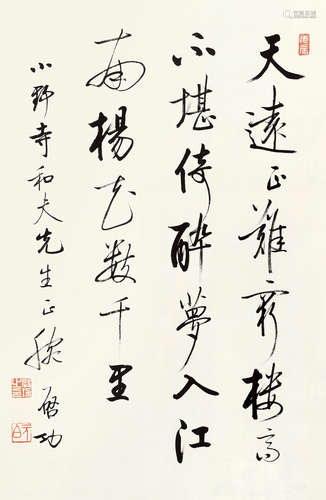 天遠正難窮樓高
不堪倚醉夢入江
南楊花數千里
小野寺和夫先生正腕
啟功